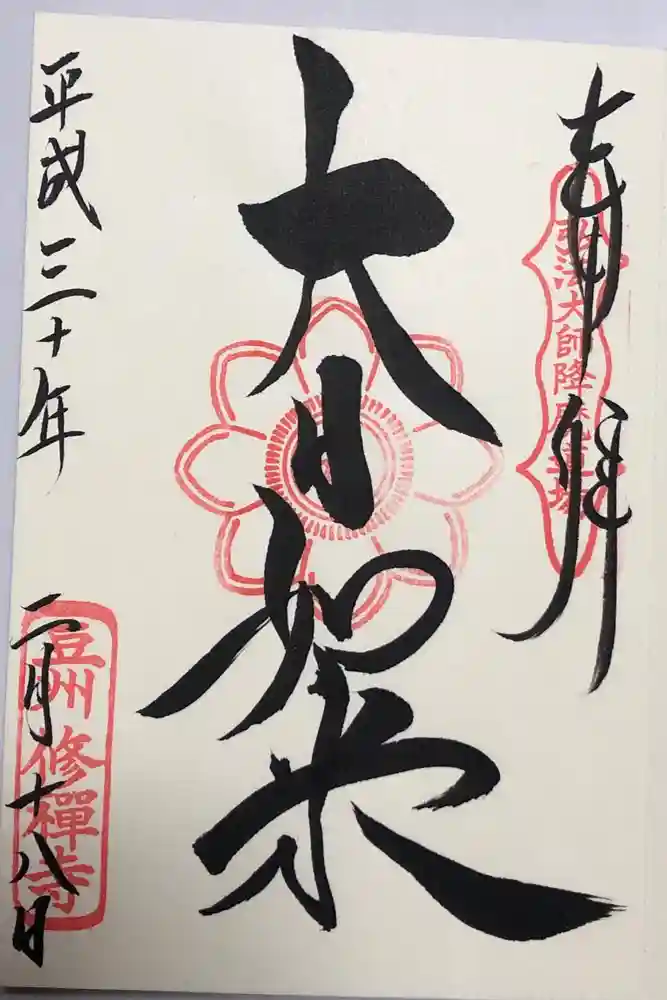 奉拝
弘法大師降魔霊場
大日如来
平成三十年
二月十八日
豆州修禅寺